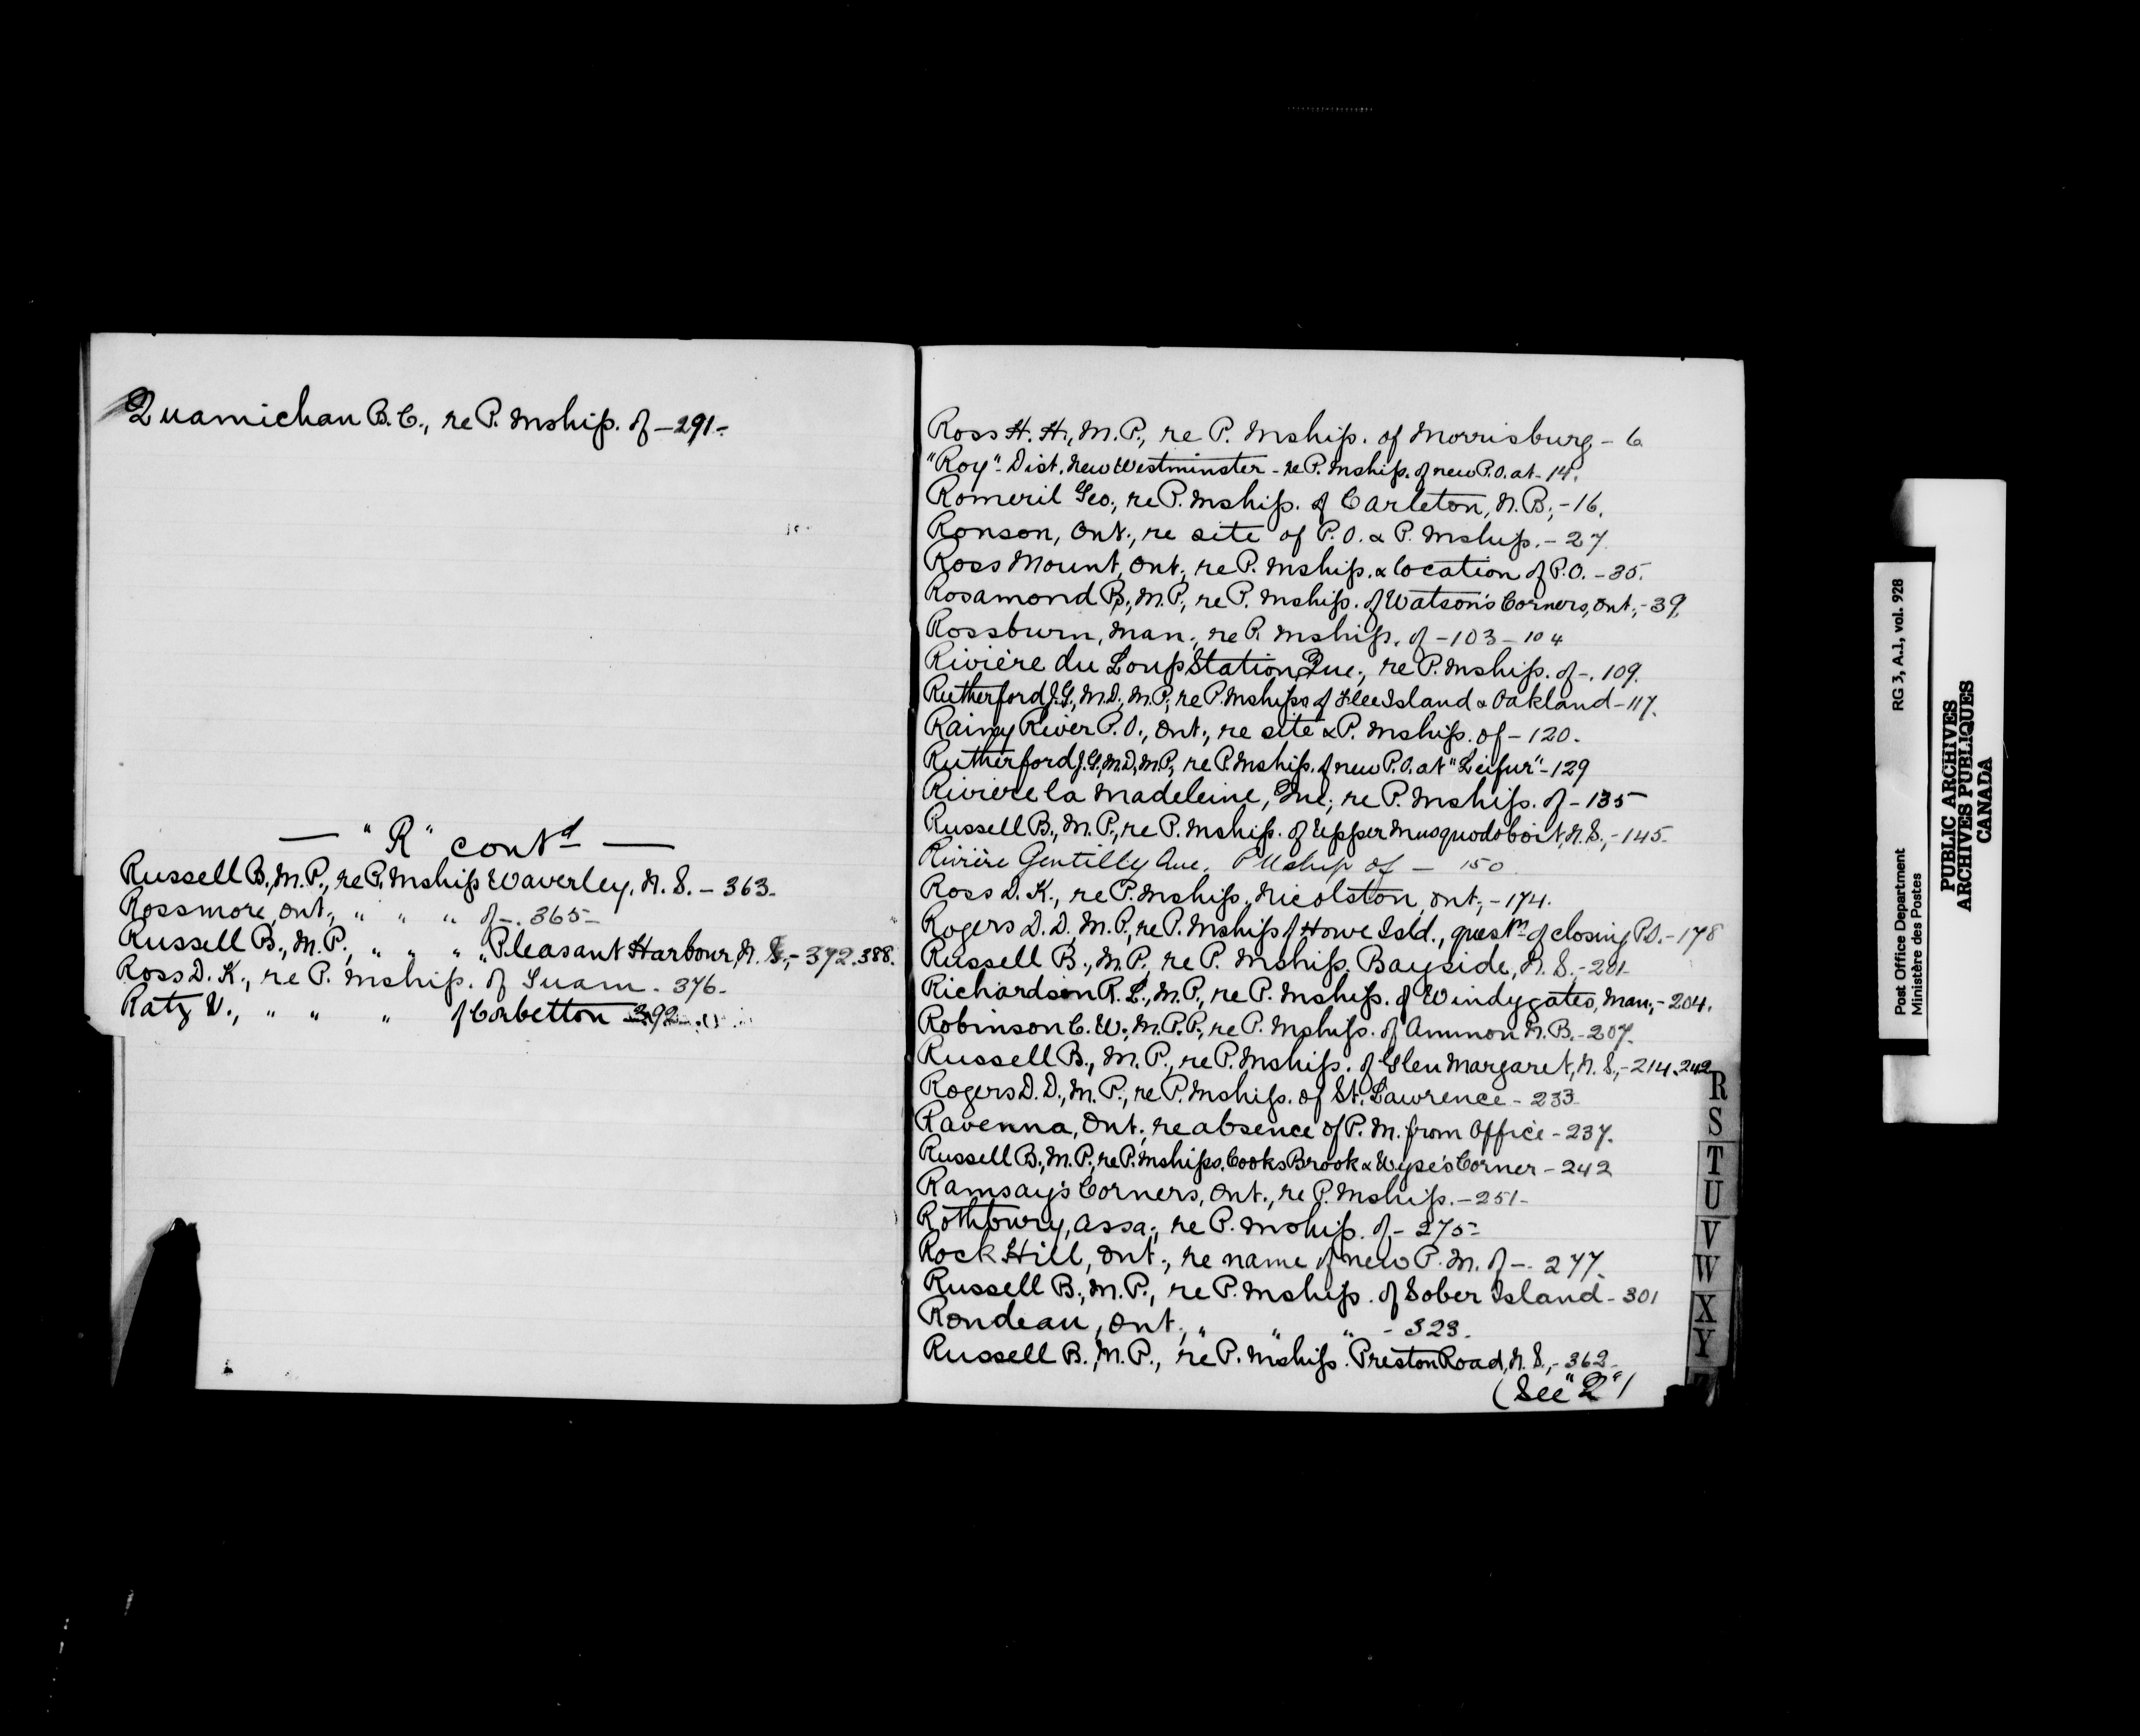 Quamichan B.C., re P. Mship. of - 291 -
— "R" contd —
Russell B., M.P., re P. Mship Waverley, N.S. - 363 -
Rossmore, Ont., " " " of - 365 -
Russell B., M.P., " " " " Pleasant Harbour, N.S., - 372. 388.
Ross D. K., re P. Mship. of Guam - 376 -
Ratz V., " " " of Corbetton 392
Ross H. H., M.P., re P. Mship. of Morrisburg - 6
"Roy" Dist. New Westminster - re P. Mship. of new P.O. at - 14.
Romeril Geo., re P. Mship. of Carleton, N.B., - 16.
Ronson, Ont., re site of P.O. & P. Mship. - 27
Ross Mount, Ont., re P. Mship. & location of P.O. - 35.
Rosamond B., M.P., re P. Mship. of Watson's Corners, Ont., - 39.
Rossburn, Man., re P. Mship. of - 103 - 104
Rivière du Loup Station, Que., re P. Mship. of - 109.
Rutherford J.G., M.D., M.P., re P. Mships of Flee Island & Oakland - 117.
Rainy River P.O., Ont., re site & P. Mship. of - 120.
Rutherford J.G., M.D., M.P., re P. Mship. of new P.O. at "Leifur" - 129
Rivière la Madeleine, Que., re P. Mship. of - 135
Russell B., M.P., re P. Mship. of Upper Musquodoboit, N.S., - 145.
Rivière Gentilly Que. P Mship of - 150
Ross D. K., re P. Mship. Nicolston, Ont., - 174.
Rogers D. D., M.P., re P. Mship of Howe Isld., questn of closing P.O. - 178
Russell B., M.P., re P. Mship. Bayside, N.S. - 201 -
Richardson R. L., M.P., re P. Mship. of Windygates, Man., - 204.
Robinson C. W., M.P.P., re P. Mship. of Ammon N.B. - 207.
Russell B., M.P., re P. Mship. of Glen Margaret, N.S., - 214. 242
Rogers D. D., M.P., re P. Mship. of St. Lawrence - 233
Ravenna, Ont., re absence of P.M. from Office - 237.
Russell B., M.P., re P. Mships. Cooks Brook & Wyse's Corner - 242
Ramsay's Corners, Ont., re P. Mship. - 251 -
Rothbury, Assa., re P. Mship. of - 275 -
Rock Hill, Ont., re name of new P.M. of - 277.
Russell B., M.P., re P. Mship. of Sober Island - 301
Rondeau, Ont., " " " - 323.
Russell B., M.P., re P. Mship. Preston Road, N.S., - 362 -
(See "Q")
R
S
T
U
V
W
X
Y
Post Office Department
Ministère des Postes
RG 3, A.1, vol. 928
PUBLIC ARCHIVES
ARCHIVES PUBLIQUES
CANADA